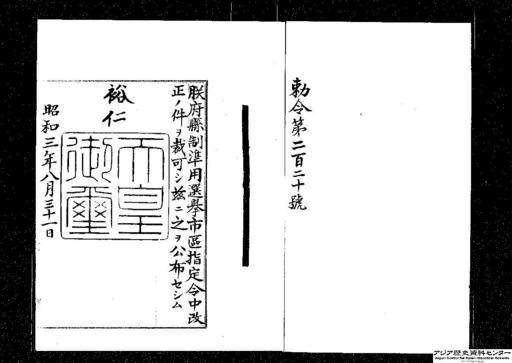 勅令第二百二十號
朕府縣制準用選擧市區指定令中改
正ノ件ヲ裁可シ茲ニ之ヲ公布セシム
裕仁
天皇
御璽
昭和三年八月三十一日
アジア歴史資料センター
Japan Center for Asian Historical Records